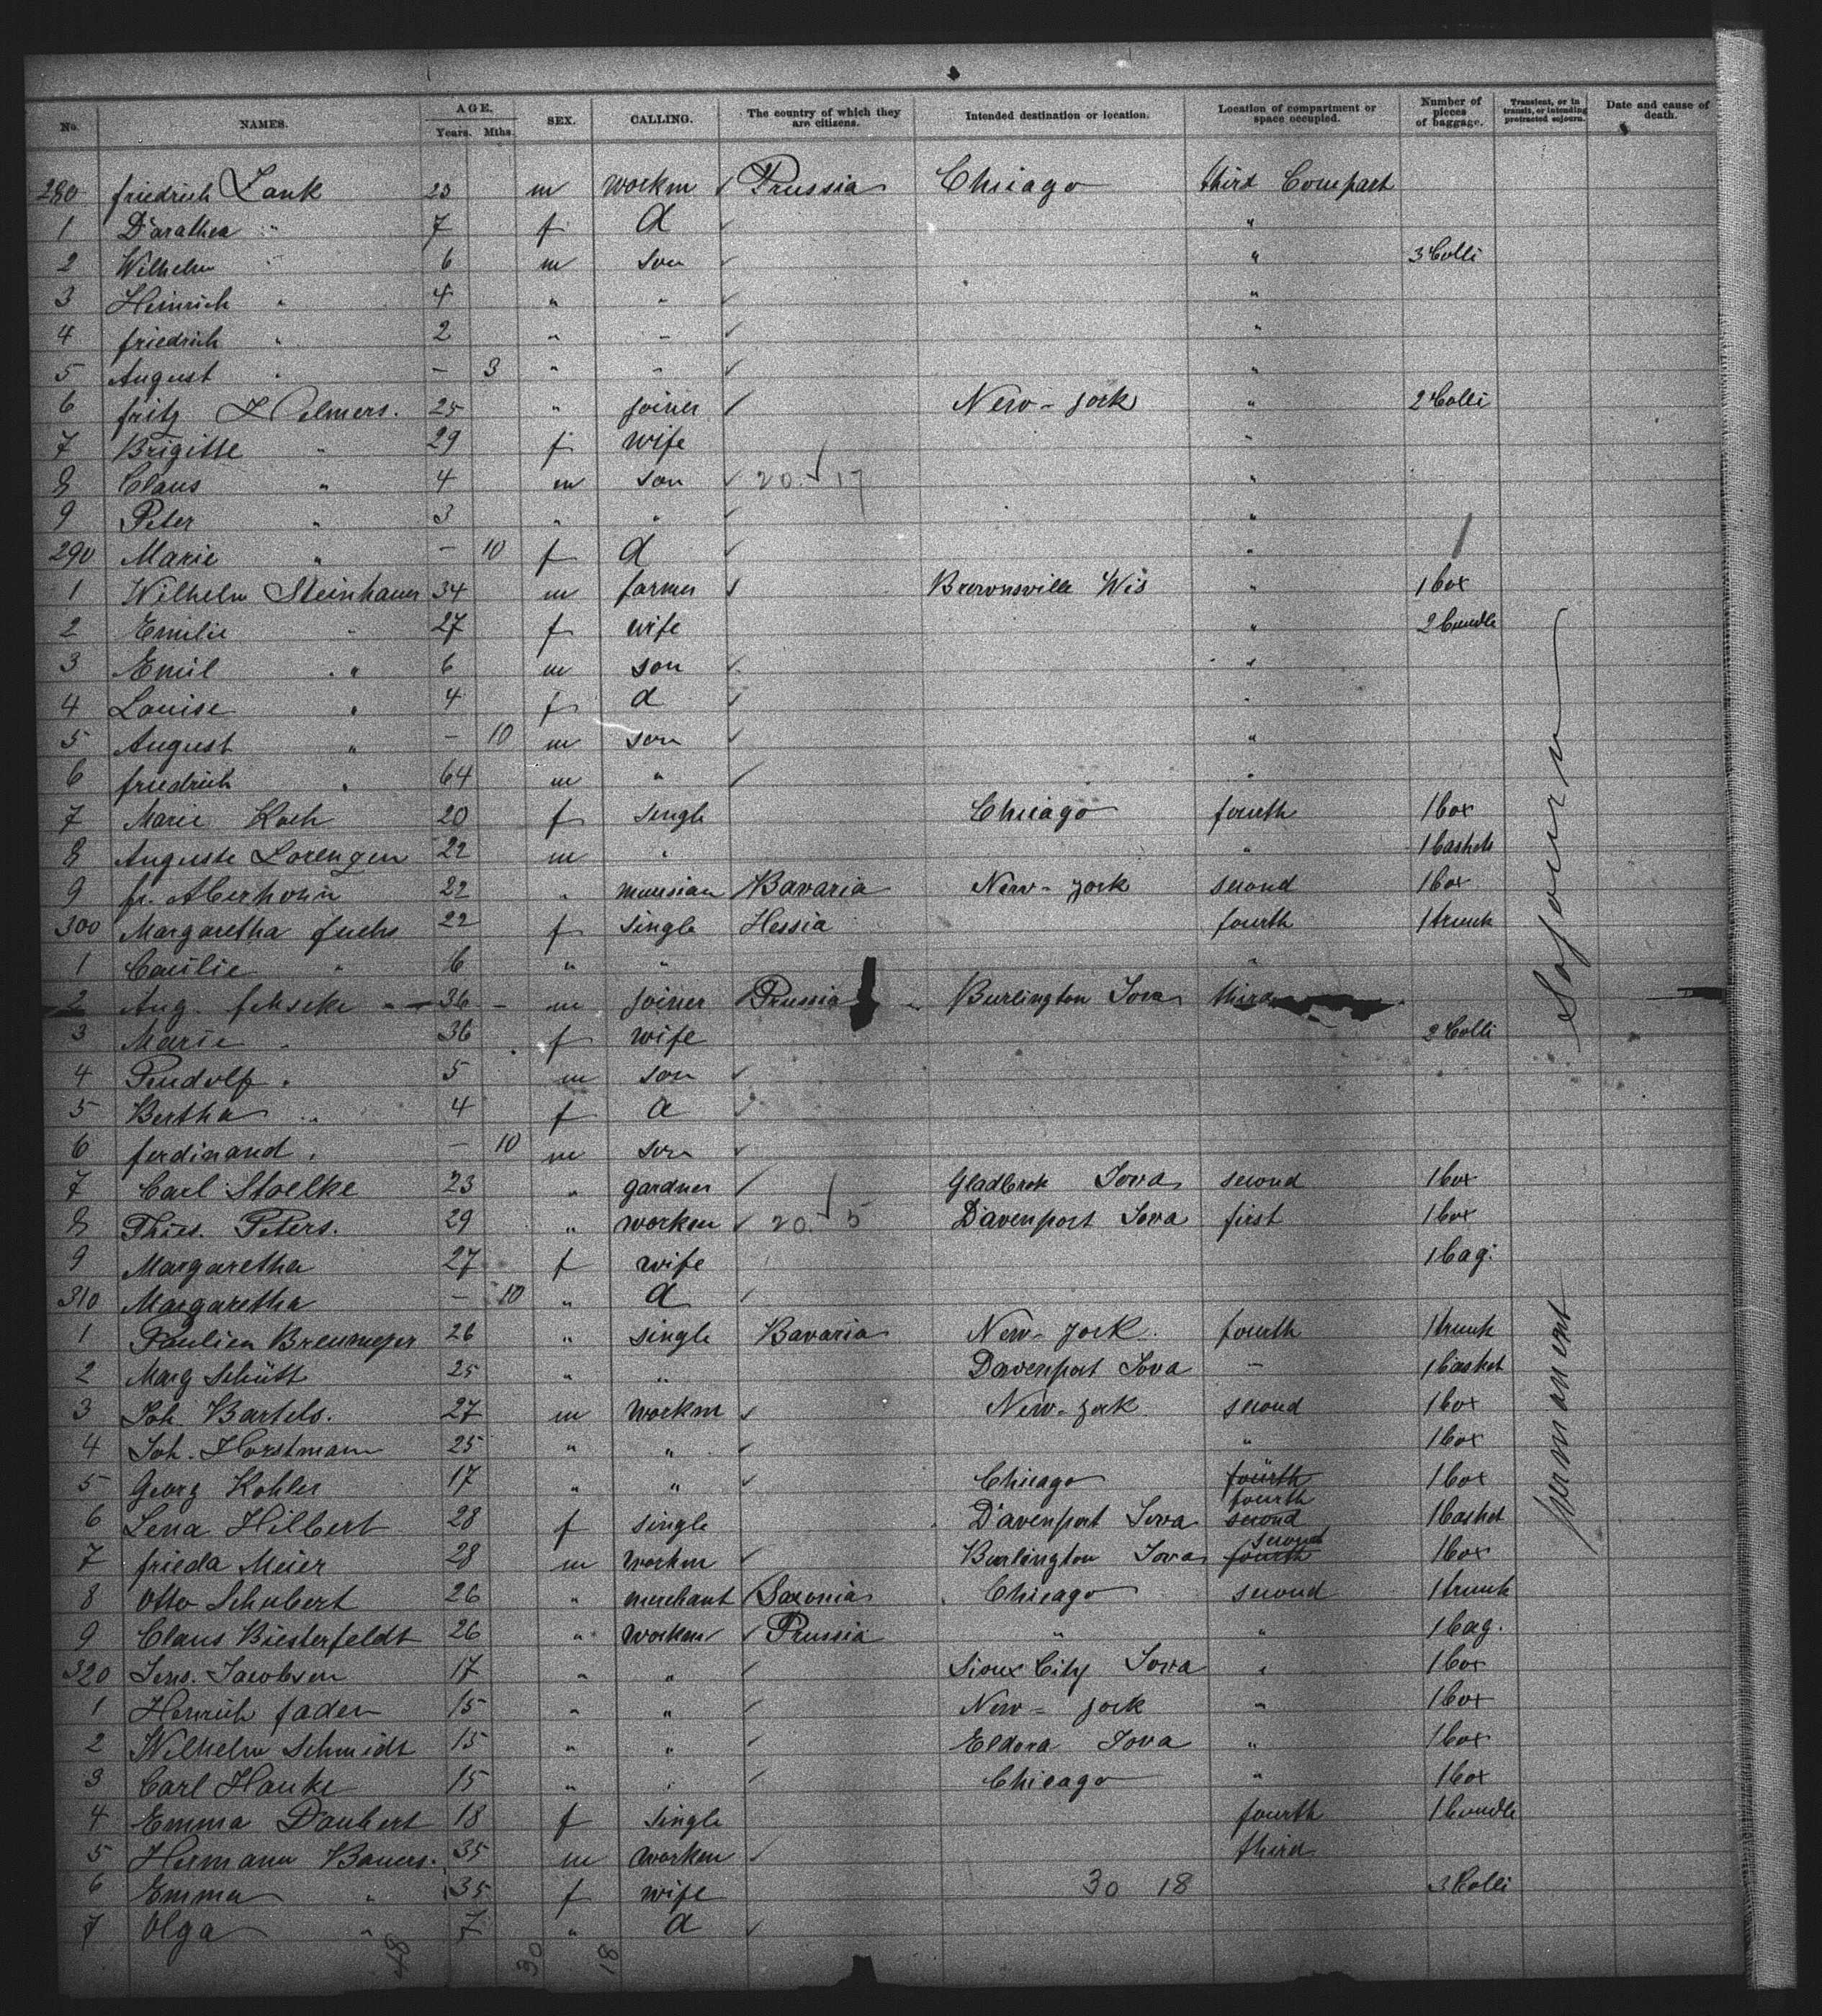 No. NAMES. AGE. Years. Mths. SEX. CALLING. The country of which they are citizens. Intended destination or location. Location of compartment or space occupied. Number of pieces of baggage. Transient, or in transit, or intending protracted sojourn. Date and cause of death.
280 friedrich Lank 23 m workm ✓ Prussia Chicago third Compart
1 Dorathea " 7 f d ✓ "
2 Wilhelm " 6 m son ✓ " 3 Colli
3 Heinrich " 4 " " ✓ "
4 friedrich " 2 " " ✓ "
5 August " – 3 " " ✓ "
6 fritz 25 " joiner ✓ New-york " 2 Colli
7 Brigitte " 29 f wife "
8 Claus " 4 m son ✓ 20 ✓ 17 "
9 Peter " 3 " " ✓ "
290 Marie " – 10 f d ✓ "
1 Wilhelm Steinhauer 34 m farmer ✓ Brownsville Wis " 1 box
2 Emilie " 27 f wife " 2 bundle
3 Emil " 6 m son ✓ "
4 Louise " 4 f d ✓ "
5 August " – 10 m son ✓ "
6 friedrich " 64 m " ✓ "
7 Marie Koch 20 f single Chicago fourth 1 box
8 Auguste Lorenzen 22 m " " 1 baskets
9 fr. 22 " musian Bavaria New-york second 1 box
300 Margaretha fuchs 22 f single Hessia fourth 1 trunk
1 Cacilie " 6 " " "
2 Aug. 36 m joiner Prussia Burlington Iova third
3 Marie " 36 f wife 2 Colli
4 Rudolf " 5 m son ✓
5 Bertha " 4 f d ✓
6 ferdinand " – 10 m son ✓
7 Carl Stoelke 23 " gardner ✓ Gladbrok Iova second 1 box
8 Thies. Peters. 29 " workm ✓ 20 ✓ 5 Davenport Iova first 1 box
9 Margaretha 27 f wife 1 bag.
310 Margaretha – 10 " d ✓
1 Paulien Breumeyer 26 " single Bavaria New-york. fourth 1 trunk
2 Marg Schütt 25 " " Davenport Iova – 1 basket
3 Joh. Bartels. 27 m workm ✓ New-york second 1 box
4 Joh. Horstmann 25 " " ✓ " 1 box
5 Georg Kohler 17 " " ✓ Chicago fourth 1 box
6 Lena Hilbert 28 f single Davenport Iova second fourth 1 basket
7 frieda Meier 28 m workm ✓ Burlington Iova fourth second 1 box
8 Otto Schubert 26 " merchant Saxonia Chicago second 1 trunk
9 Claus Biesterfeldt 26 " workm ✓ Prussia " " 1 bag.
320 Jens. Jacobsen 17 " " ✓ Sioux City Iowa " 1 box
1 Henrich faden 15 " " ✓ New-york " 1 box
2 Wilhelm Schmidt 15 " " ✓ Eldora Iova " 1 box
3 Carl Hanke 15 " " ✓ Chicago " 1 box
4 Emma Daubert 18 f single fourth 1 bundle
5 Hermann Bauers. 35 m workm ✓ third
6 Emma " 35 f wife 30 18 3 Colli
7 Olga " 7 " d ✓
48 30 18
permanent Sojourn